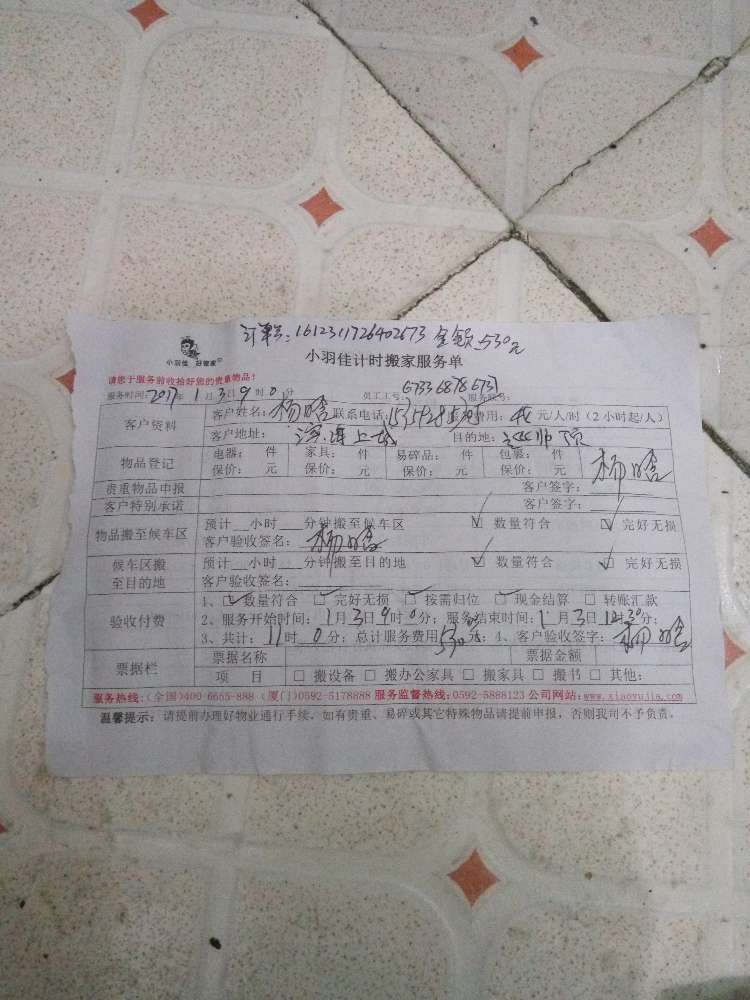 订单号：1612311726402673 金额 530元
小羽佳 好管家
小羽佳计时搬家服务单
请您于服务验收拾好您的贵重物品！
服务时间：2017年1月3日9时0分 员工工号： 服务账号：
客户资料 客户姓名：杨晗 联系电话： 费用： 元/人/时（2小时起/人）
客户地址： 上城 目的地：
物品登记 电器： 件 家具： 件 易碎品： 件 包裹： 件 杨晗
保价： 元 保价： 元 保价： 元 保价： 元
贵重物品申报 客户签字：
客户特别承诺 客户签字：
物品搬至候车区 预计__小时__分钟搬至候车区 ☑ 数量符合 ☑ 完好无损
客户验收签名：杨晗
候车区搬至目的地 预计__小时__分钟搬至目的地 ☑ 数量符合 ☑ 完好无损
客户验收签名：
验收付费 1、☑数量符合 ☑完好无损 ☑按需归位 ☑现金结算 □转账汇款
2、服务开始时间：1月3日9时0分；服务结束时间：1月3日12时30分；
3、共计：11时0分；总计服务费用530元；4、客户验收签字：杨晗
票据栏 票据名称 票据金额
项 目 □搬设备 □搬办公家具 □搬家具 □搬书 □其他：
服务热线：(全国)400-6655-888 (厦门)0592-5178888 服务监督热线：0592-5888123 公司网站：www.xiaoyujia.com
温馨提示：请提前办理好物业通行手续，如有贵重、易碎或其它特殊物品请提前申报，否则我司不予负责。